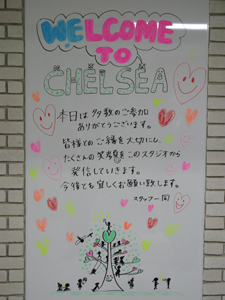 WELCOME
TO
CHELSEA
本日は多数のご参加
ありがとうございます。
皆様とのご縁を大切にし、
たくさんの笑顔をこのスタジオから
発信していきます。
今後とも宜しくお願い致します。
スタッフ一同